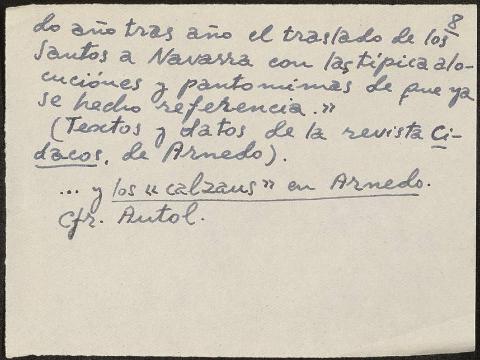 8
do año tras año el traslado de los
Santos a Navarra con las típica alo-
cuciónes y pantomimas de que ya
se hecho referencia.»
(Textos y datos de la revista Ci-
dacos, de Arnedo).
... y los «calzaus» en Arnedo.
Cfr. Autol.